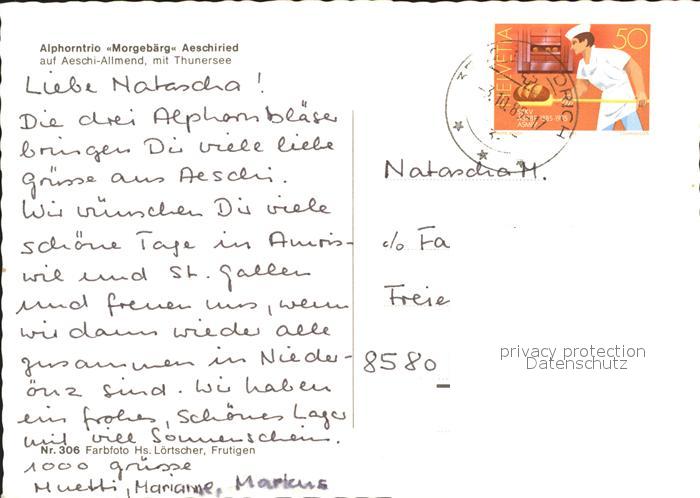 Alphorntrio «Morgebärg« Aeschiried
auf Aeschi-Allmend, mit Thunersee
Liebe Natascha!
Die drei Alphornbläser
bringen Dir viele liebe
grüsse aus Aeschi.
Wir wünschen Dir viele
schöne Tage in Amris-
wil und St. Gallen
und freuen uns, wenn
wir dann wieder alle
zusammen in Nieder-
önz sind. Wir haben
ein frohes, schönes Lager
mit viel Sonnenschein.
Nr. 306 Farbfoto Hs. Lörtscher, Frutigen
1000 grüsse
Muetti, Marianne, Markus
HELVETIA
50
Natascha M.
c/o Fa
Freie
8580
privacy protection
Datenschutz